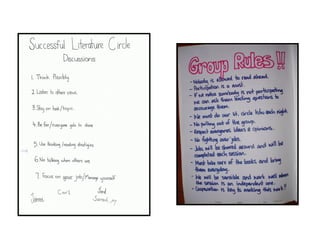 Successful Literature Circle
Discussions
1. Think flexibly
2. Listen to others views
3. Stay on task/topic.
4. Be fair/everyone gets to share
5. Use thinking/reading strategies
6. No talking when others are
7. Focus on your job/Manage yourself
Jarred
Group Rules!!
- Nobody is allowed to read ahead.
- Participation is a must.
- If we notice somebody is not participating
we can ask them leading questions to
encourage them.
- We must do our lit. circle jobs each night.
- No putting out of the group.
- Respect everyone's ideas & opinions.
- No fighting over jobs.
- Jobs will be shared around and will be
completed each session.
- Must take care of the books and bring
them everyday.
- We will be sensible and work well when
the session is an independent one.
- Cooperation is key to making this work!!